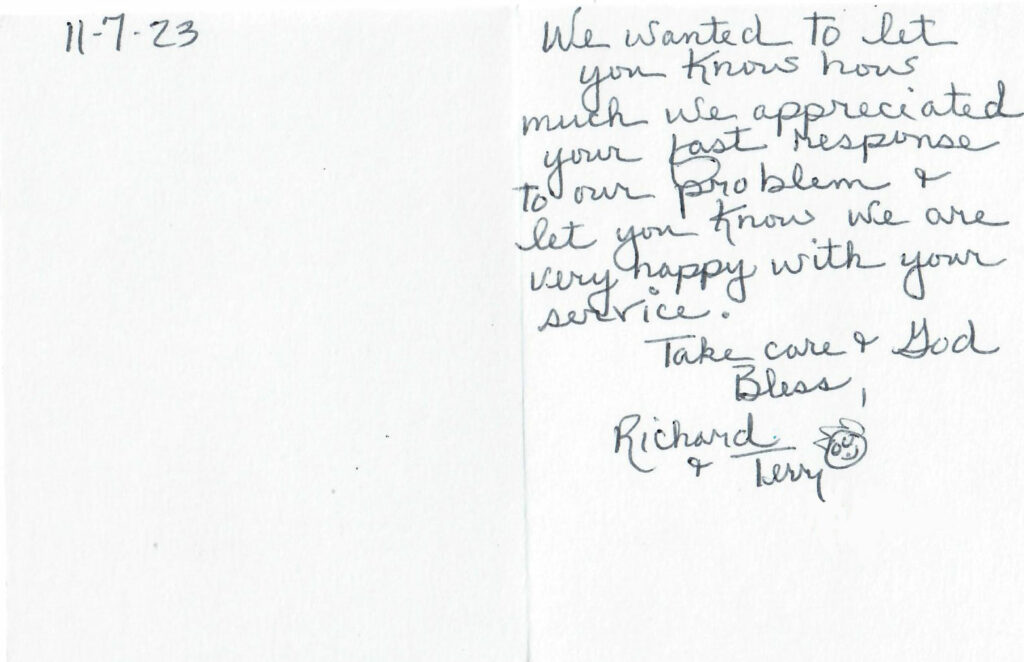 11-7-23
We wanted to let
you know how
much we appreciated
your fast response
to our problem &
let you know we are
very happy with your
service.
Take care & God
Bless,
Richard
& Terry